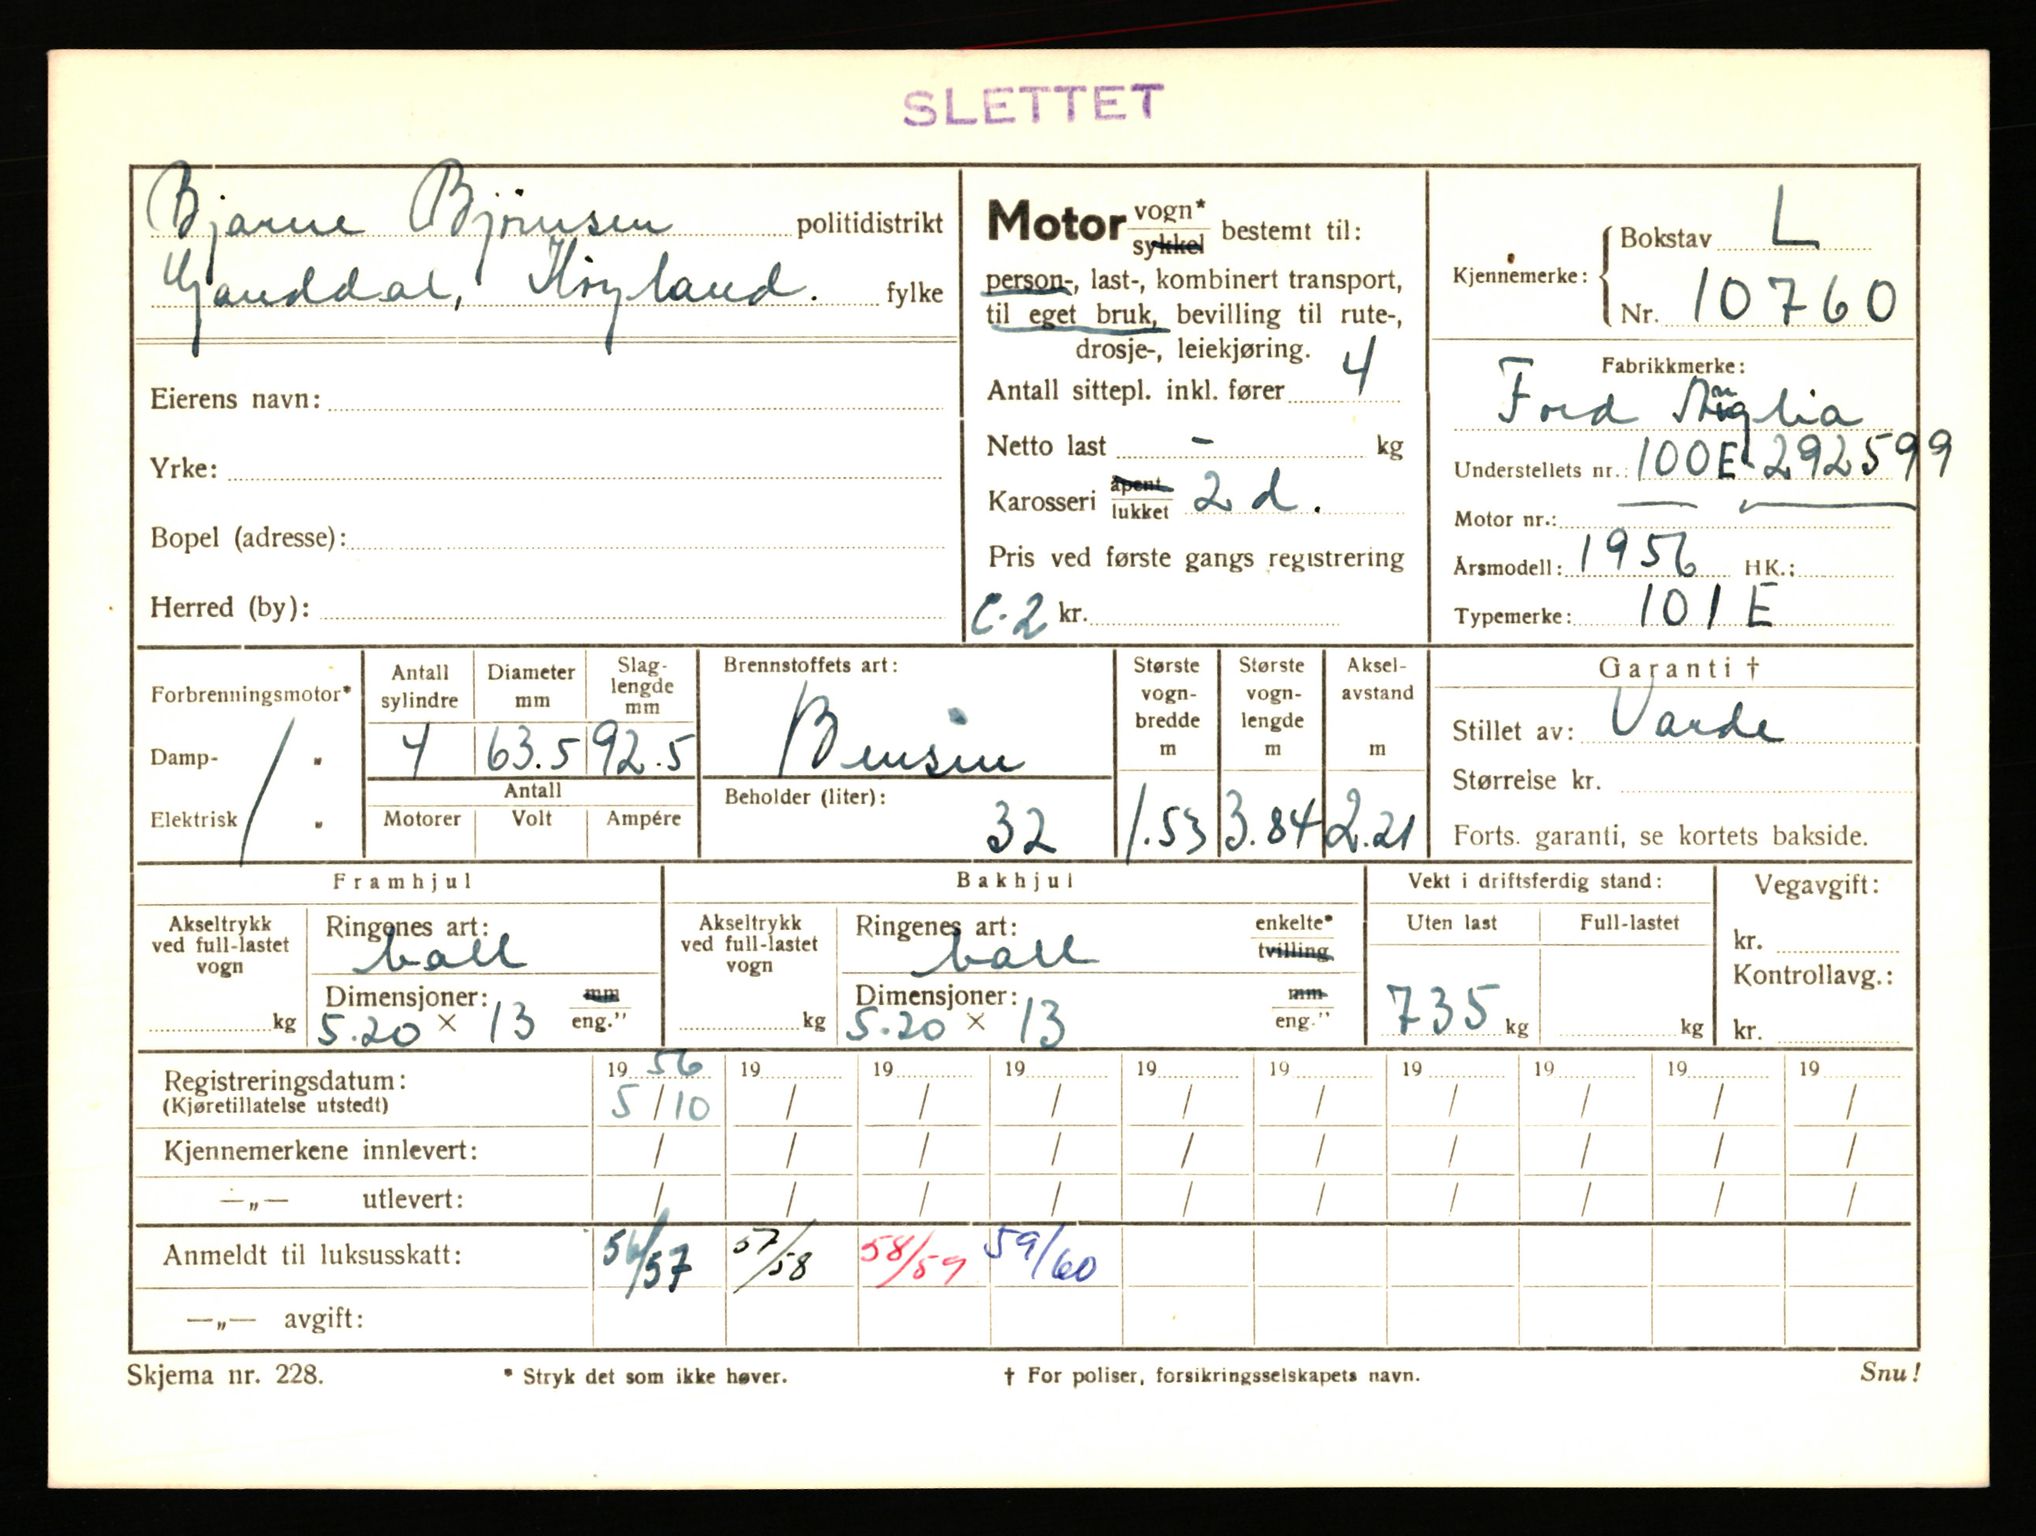 SLETTET
Bjarne Björnsen politidistrikt
Ganddal, Höyland. fylke
Eierens navn:
Yrke:
Bopel (adresse):
Herred (by):
Motor vogn* sykkel bestemt til:
person-, last-, kombinert transport,
til eget bruk, bevilling til rute-,
drosje-, leiekjøring.
Antall sittepl. inkl. fører 4
Netto last - kg
Karosseri åpent lukket 2 d.
Pris ved første gangs registrering
C-2 kr.
Kjennemerke: Bokstav L
Nr. 10760
Fabrikkmerke:
Ford Anglia
Understellets nr.: 100E-292599
Motor nr.:
Årsmodell: 1956 HK.:
Typemerke: 101E
Forbrenningsmotor*
Damp- "
Elektrisk "
Antall sylindre
Diameter mm
Slag-lengde mm
4 63.5 92.5
Antall
Motorer Volt Ampére
Brennstoffets art:
Bensin
Beholder (liter):
32
Største vogn-bredde m
1.53
Største vogn-lengde m
3.84
Aksel-avstand m
2.21
Garanti †
Stillet av: Varde
Størrelse kr.
Forts. garanti, se kortets bakside.
Framhjul
Akseltrykk ved full-lastet vogn
kg
Ringenes art:
ball
Dimensjoner: mm
5.20 × 13 eng."
Bakhjul
Akseltrykk ved full-lastet vogn
kg
Ringenes art: enkelte*
ball tvilling
Dimensjoner: mm
5.20 × 13 eng."
Vekt i driftsferdig stand:
Uten last Full-lastet
735 kg kg
Vegavgift:
kr.
Kontrollavg.:
kr.
Registreringsdatum: 19 56 19 19 19 19 19 19 19 19 19
(Kjøretillatelse utstedt) 5/10 / / / / / / / / /
Kjennemerkene innlevert: / / / / / / / / / /
—„— utlevert: / / / / / / / / / /
Anmeldt til luksusskatt: 56/57 57/58 58/59 59/60
—„— avgift:
Skjema nr. 228. * Stryk det som ikke høver. † For poliser, forsikringsselskapets navn. Snu!